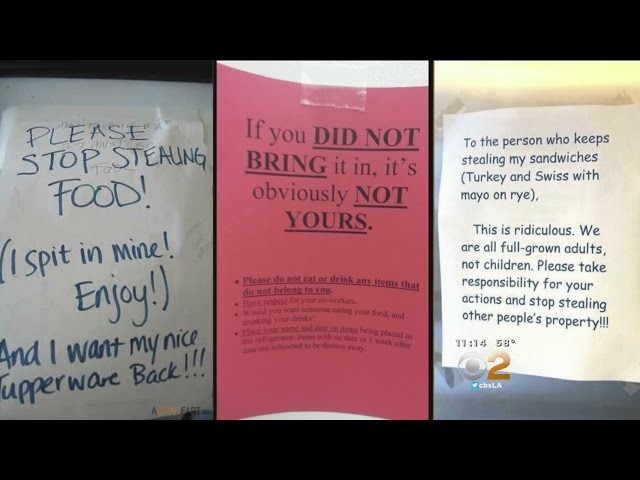 PLEASE
STOP STEALING
FOOD!
(I spit in mine!
Enjoy!)
And I want my nice
Tupperware Back!!!
If you DID NOT
BRING it in, it's
obviously NOT
YOURS.
• Please do not eat or drink any items that
do not belong to you.
• Have respect for your co-workers.
• Would you want someone eating your food, and
drinking your drinks?
• Place your name and date on items being placed in
the refrigerator. Items with no date or 1 week after
date are subjected to be thrown away.
To the person who keeps
stealing my sandwiches
(Turkey and Swiss with
mayo on rye),
This is ridiculous. We
are all full-grown adults,
not children. Please take
responsibility for your
actions and stop stealing
other people's property!!!
11:14 58°
2
cbsLA